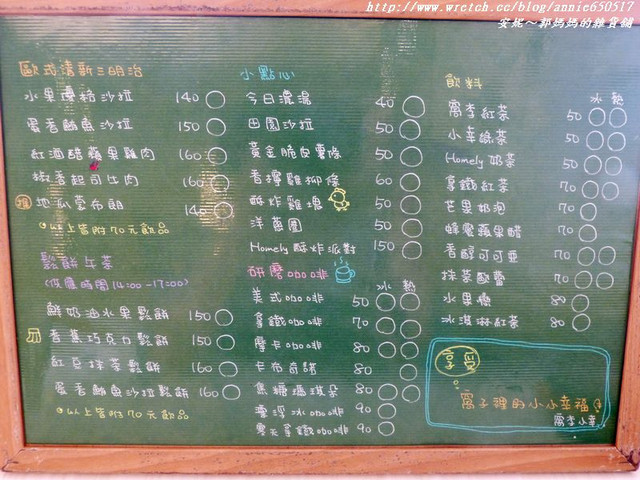 http://www.wretch.cc/blog/annie650517
安妮～郭媽媽的雜貨舖
歐式清新三明治
水果優格沙拉 140
蛋香鮪魚沙拉 150
紅酒醋蘋果雞肉 160
椒香起司比肉 160
地瓜蒙布朗 140
以上皆附70元飲品
鬆餅午茶
(供應時間14:00-17:00)
鮮奶油水果鬆餅 150
香蕉巧克力鬆餅 150
紅豆抹茶鬆餅 160
蛋香鮪魚沙拉鬆餅 160
以上皆附70元飲品
小點心
今日濃湯 40
田園沙拉 50
黃金脆皮薯條 50
香檸雞柳條 60
酥炸雞塊 50
洋蔥圈 50
Homely酥炸派對 150
研磨咖啡
冰 熱
美式咖啡 50
拿鐵咖啡 70
摩卡咖啡 80
卡布奇諾 80
焦糖瑪琪朵 80
漂浮冰咖啡 90
拿鐵咖啡 90
飲料
冰 熱
窩李紅茶 50
小幸綠茶 50
Homely奶茶 50
拿鐵紅茶 70
芒果奶泡 70
蜂蜜蘋果醋 70
香醇可可亞 70
抹茶歐蕾 70
水果 80
冰淇淋紅茶 80
窩子裡的小小幸福
窩李小幸